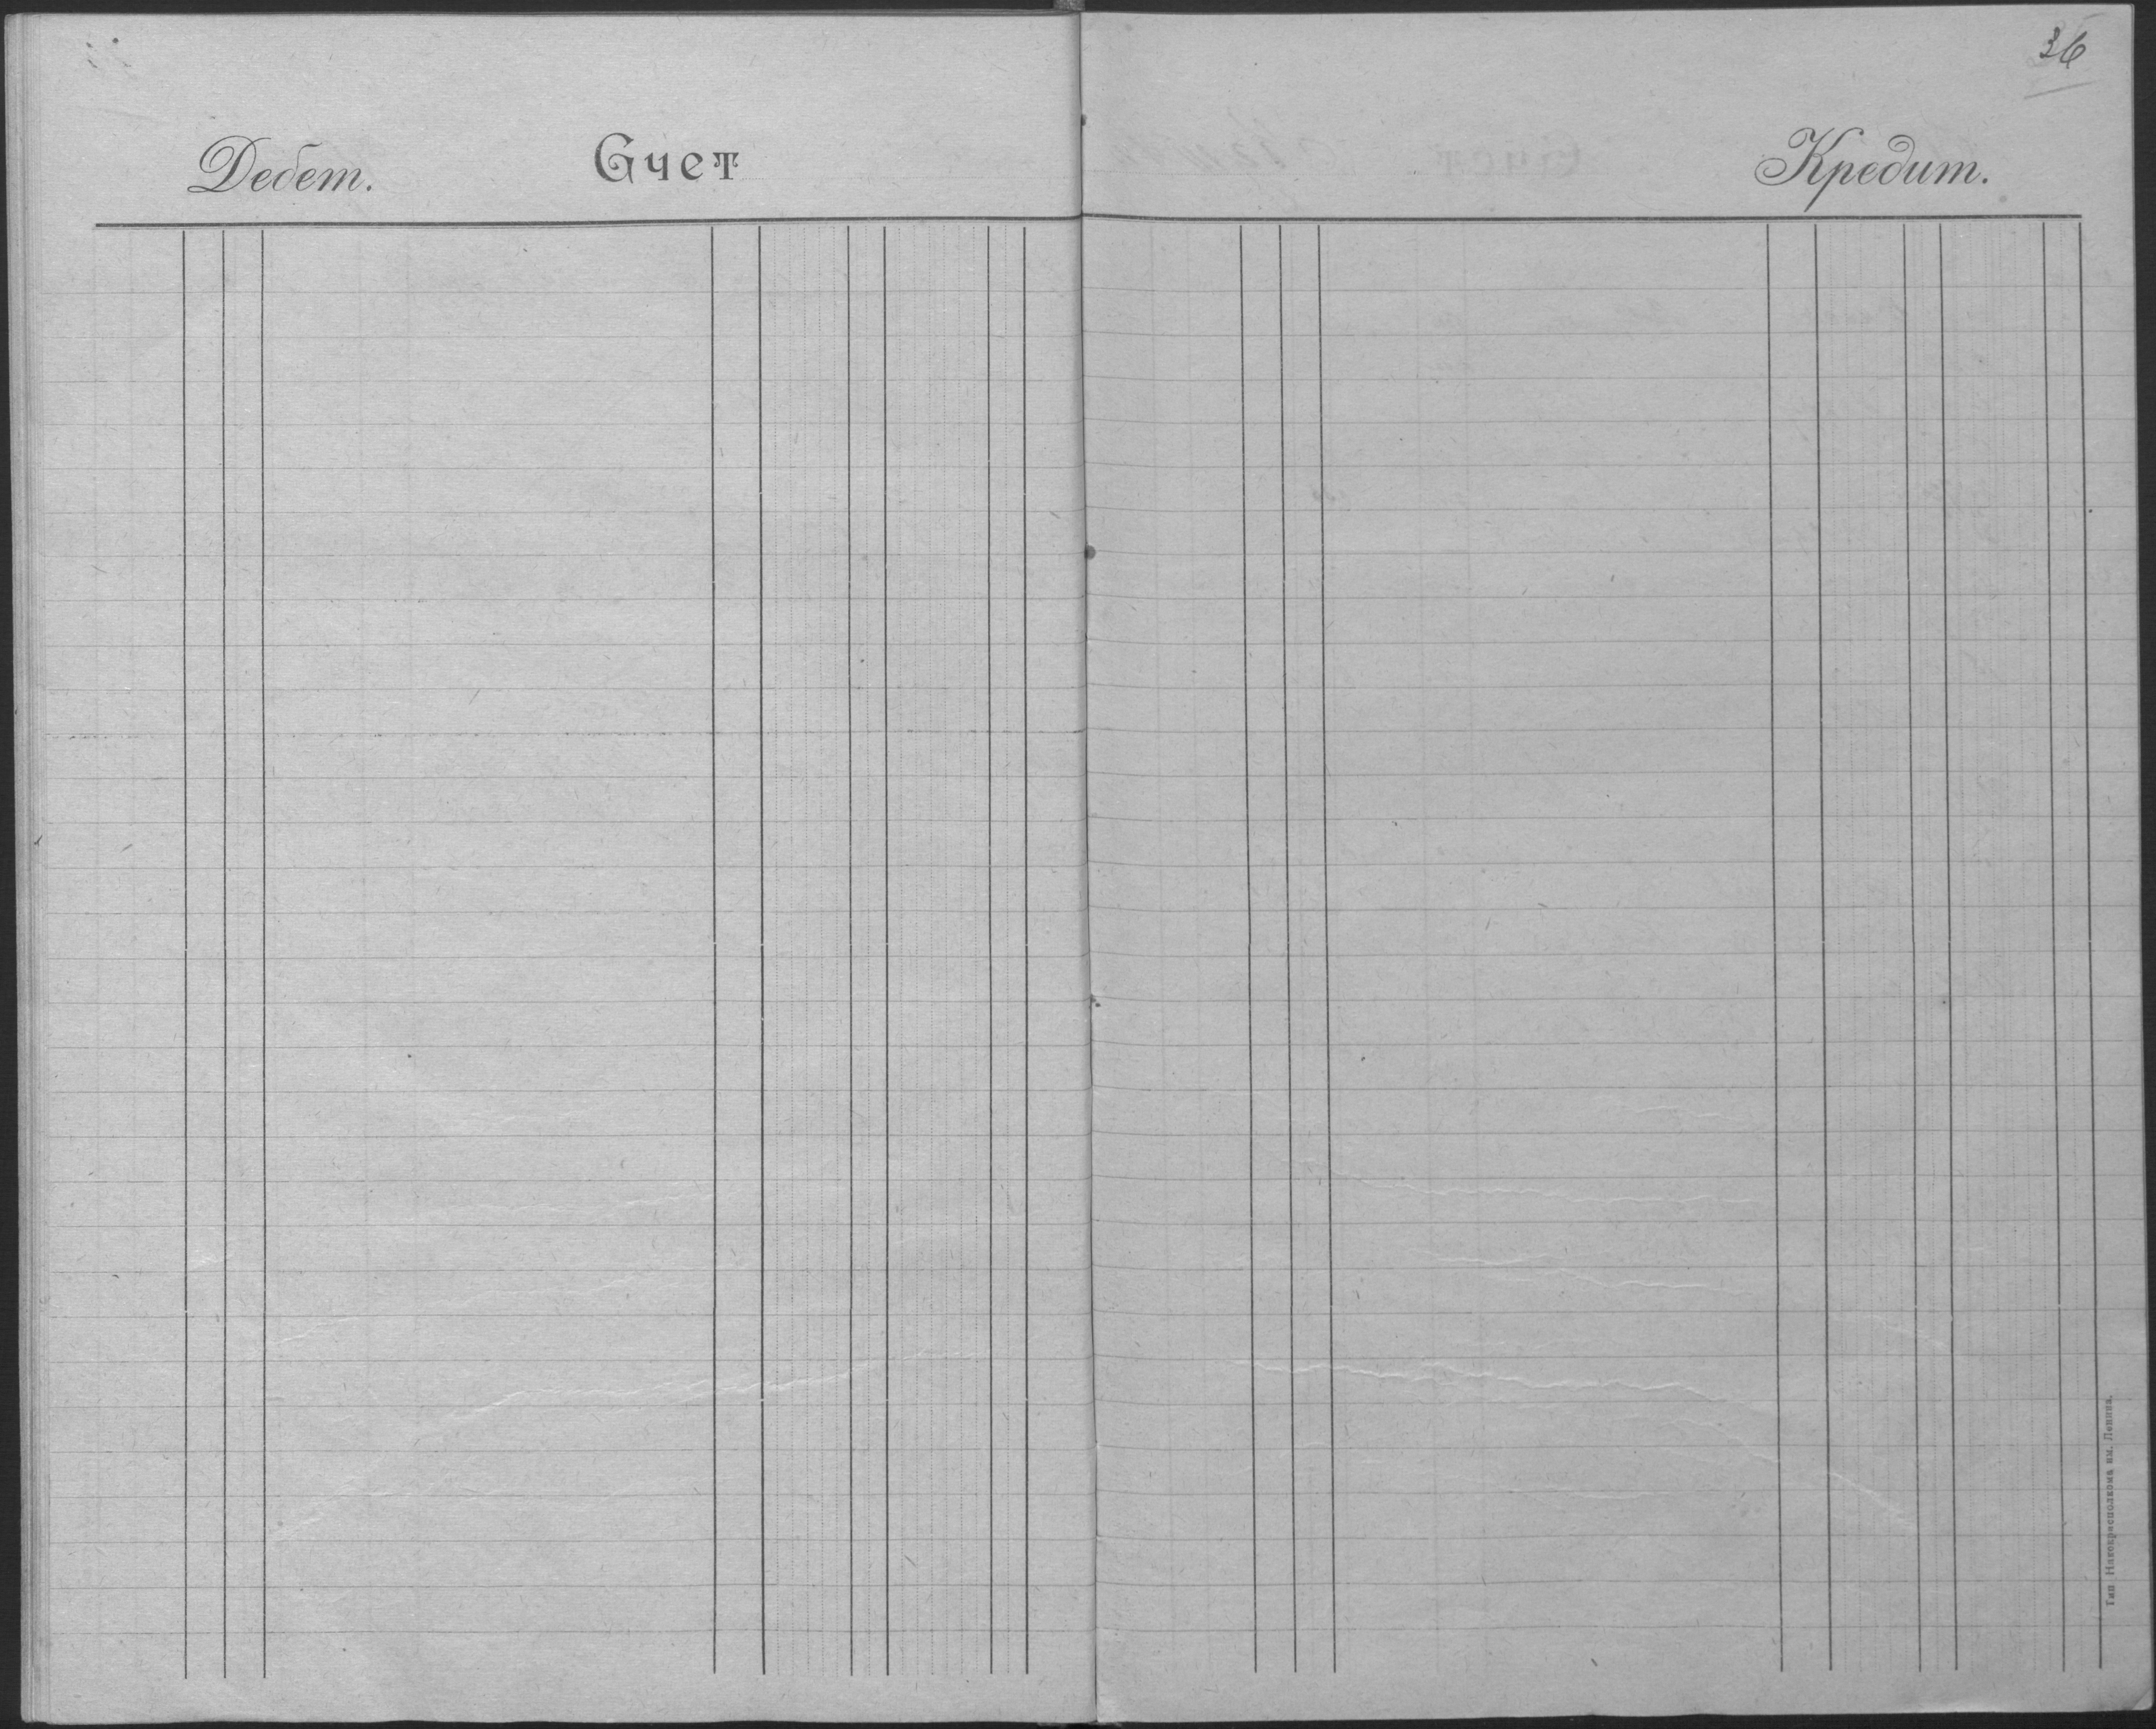 36
Дебет. Счет Кредит.
Тип. Нахекрисполкома им. Ленина.